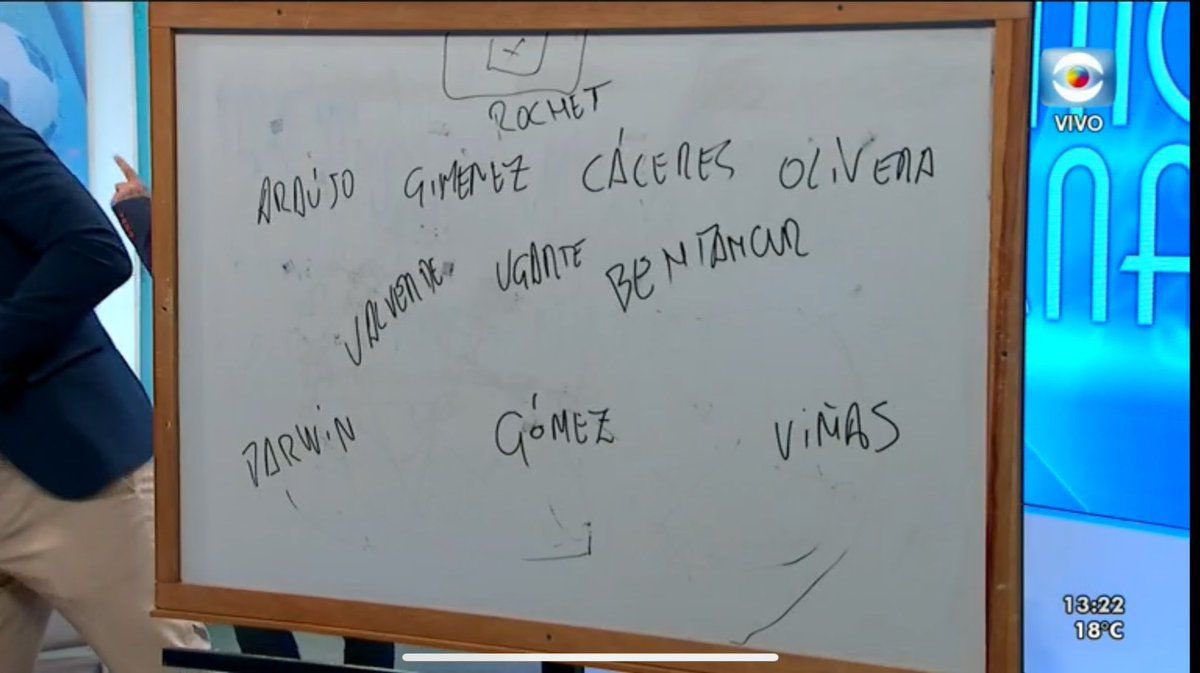 ROCHET
ARAÚJO GIMENEZ CÁCERES OLIVERA
VALVERDE UGARTE BENTANCUR
DARWIN GÓMEZ VIÑAS
VIVO
13:22
18°C